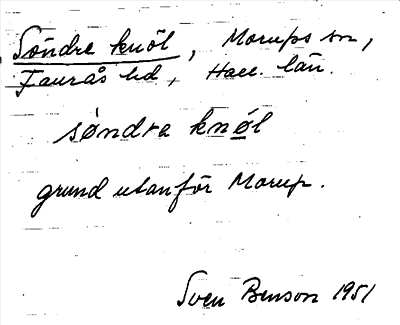 Söndre knöl, Morups sn,
Faurås hd, Hall. län.
søndra knøl
grund utanför Morup.
Sven Benson 1951